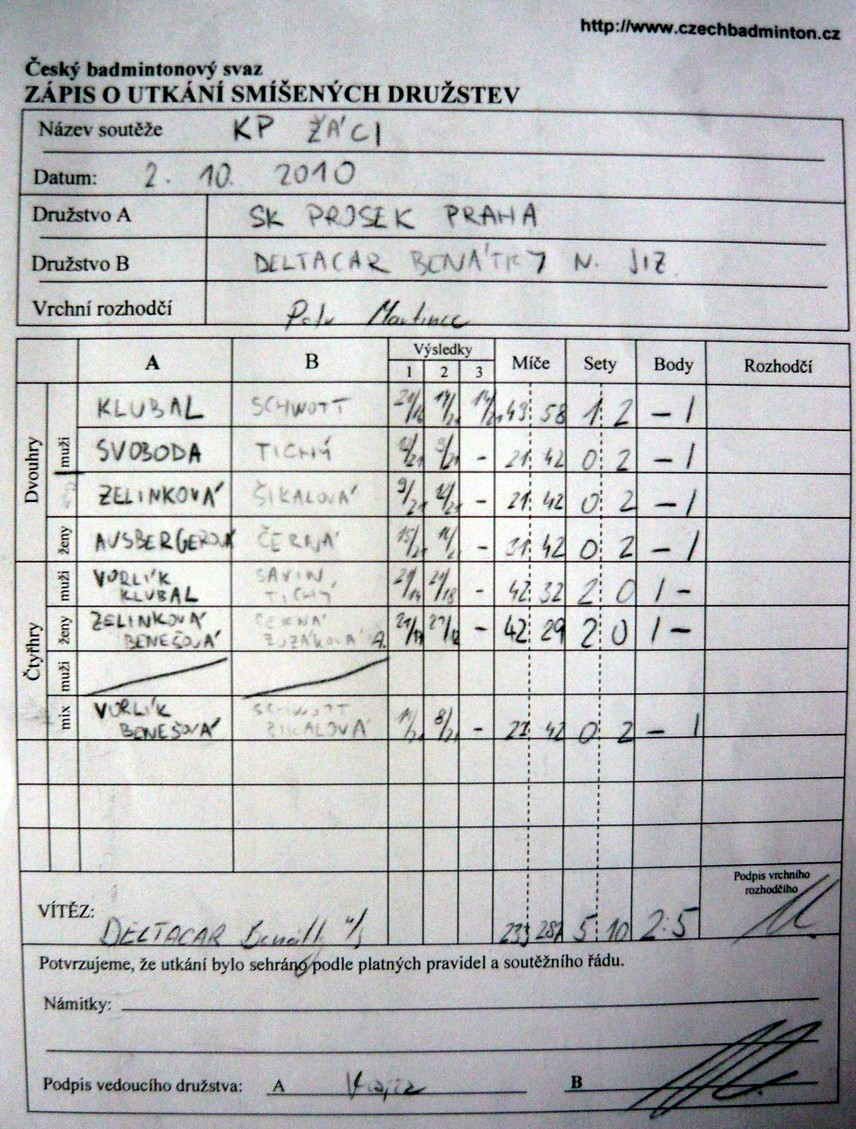 http://www.czechbadminton.cz
Český badmintonový svaz
ZÁPIS O UTKÁNÍ SMÍŠENÝCH DRUŽSTEV
Název soutěže KP ŽÁCI
Datum: 2. 10. 2010
Družstvo A SK PROSEK PRAHA
Družstvo B DELTACAR BENÁTKY N. JIZ.
Vrchní rozhodčí Petr Martinec
A B Výsledky 1 2 3 Míče Sety Body Rozhodčí
Dvouhry
muži
KLUBAL SCHWOTT 14/21 49 58 1 2 – 1
SVOBODA TICHÝ 9/21 - 21 42 0 2 – 1
ZELINKOVÁ ŠIKALOVÁ 9/21 12/21 - 21 42 0 2 – 1
ženy
AUSBERGEROVÁ ČERNÁ 15/21 - 31 42 0 2 – 1
Čtyřhry
muži
VORLÍK KLUBAL SAVIN, TICHÝ 21/14 21/18 - 42 32 2 0 1 –
ženy
ZELINKOVÁ BENEŠOVÁ ČERNÁ ZUZÁKOVÁ A. 21/17 21/12 - 42 29 2 0 1 –
muži
mix
VORLÍK BENEŠOVÁ SCHWOTT ŽIKALOVÁ 8/21 - 42 0 2 – 1
Podpis vrchního
rozhodčího
VÍTĚZ: DELTACAR 233 287 5 10 2:5
Potvrzujeme, že utkání bylo sehráno podle platných pravidel a soutěžního řádu.
Námitky:
Podpis vedoucího družstva: A B